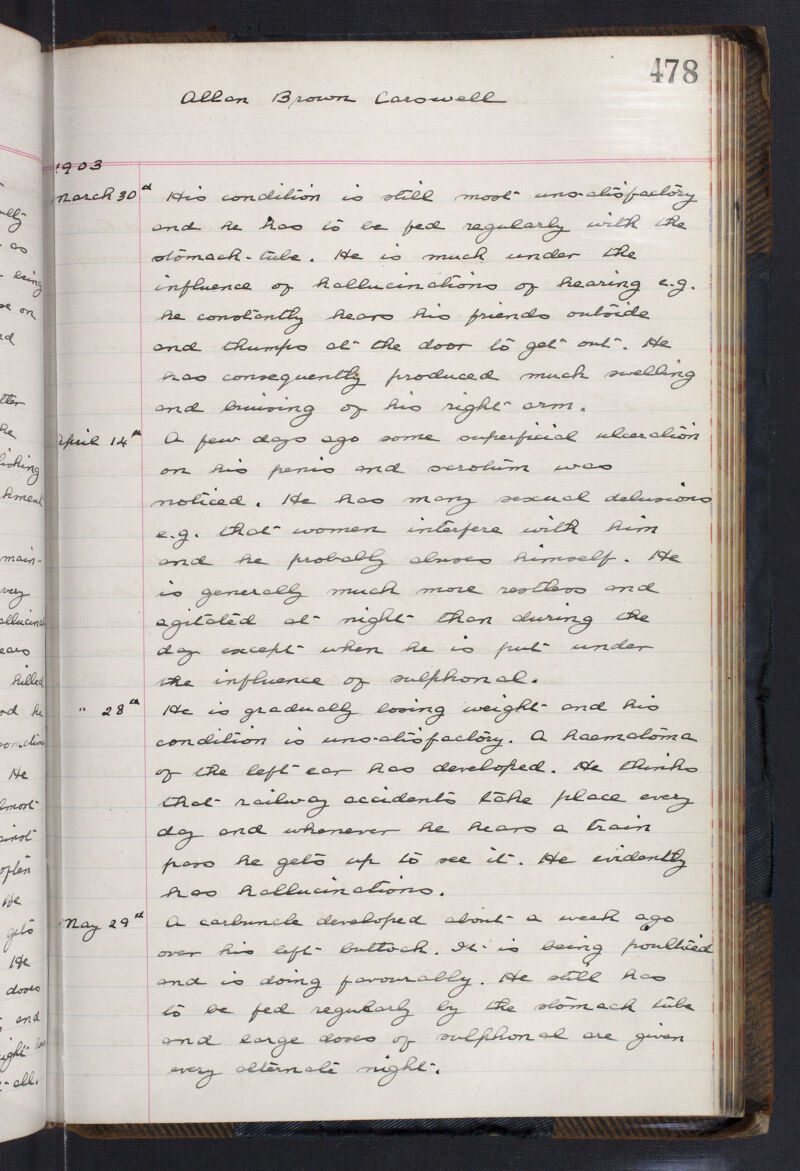 478
Allan Brown Carswell
1903
March 30th His condition is still most unsatisfactory
and he has to be fed regularly with the
stomach-tube. He is much under the
influence of hallucinations of hearing e.g.
he constantly hears his friends outside
and thumps at the door to get out. He
has consequently produced much swelling
and bruising of his right arm.
April 14th A few days ago some superficial ulceration
on his penis and scrotum was
noticed. He has many sexual delusions
e.g. that women interfere with him
and he probably abuses himself. He
is generally much more restless and
agitated at night than during the
day except when he is put under
the influence of sulphonal.
" 28th He is gradually losing weight and his
condition is unsatisfactory. A haematoma
of the left ear has developed. He thinks
that railway accidents take place every
day and whenever he hears a train
pass he gets up to see it. He evidently
has hallucinations.
May 29th A carbuncle developed about a week ago
over his left buttock. It is being poulticed
and is doing favourably. He still has
to be fed regularly by the stomach tube
and large doses of sulphonal are given
every alternate night.